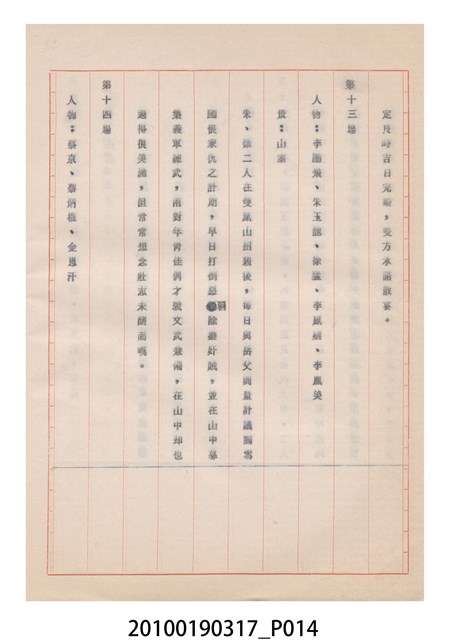 定良時吉日完婚，雙方承諾散宴。
第十三場
人物：李勝飛、朱玉龍、徐猛、李鳳嬌、李鳳英
景：山寨
朱、徐二人在雙鳳山招親後，每日與岳父商量計議報雪
國恨家仇之計劃，早日打倒 除 奸賊，並在山中募
集義軍練武，兩對年青佳偶才貌文武兼備，在山中却也
過得很美滿，但常常想念壯志未酬而嘆。
第十四場
人物：蔡京、蔡 、金恩汗
20100190317_P014